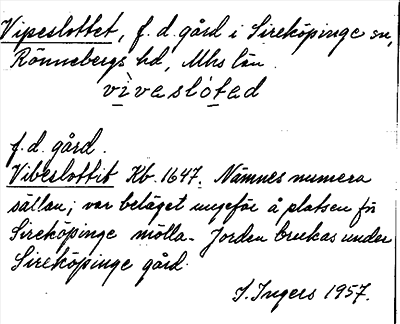 Vipeslottet, f. d. gård i Sireköpinge sn,
Rönnebergs hd, Mhs län.
vivesló́tad
f. d. gård.
Vibeslottit Kb. 1647. Nämnes numera
sällan; var beläget ungefär å platsen för
Sireköpinge mölla. Jorden brukas under
Sireköpinge gård.
I. Ingers 1957.